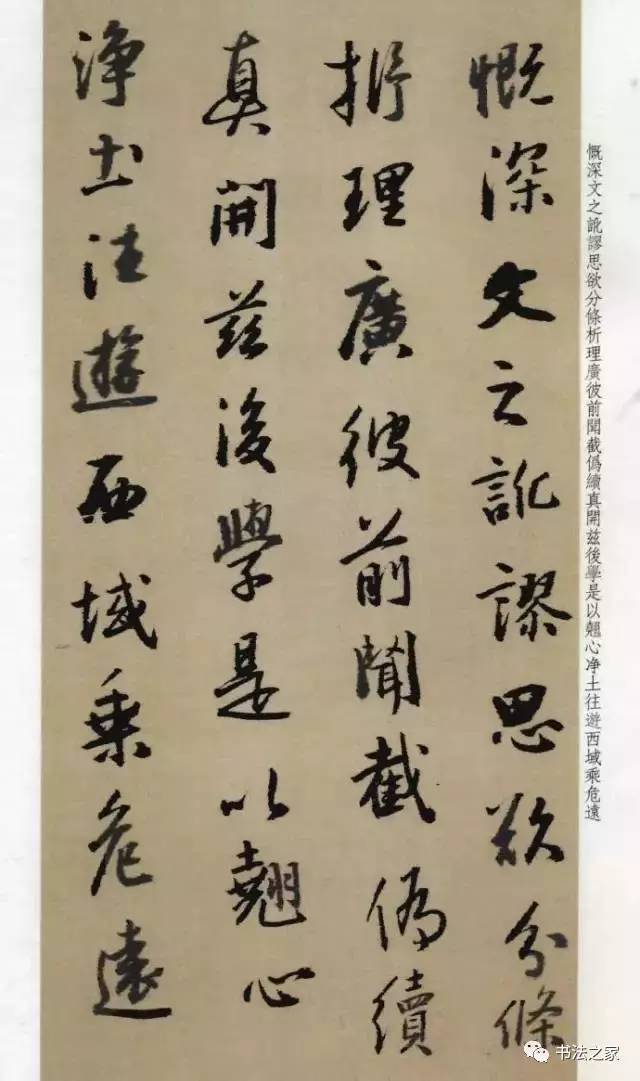 慨深文之訛謬思欲分條析理廣彼前聞截僞續真開兹後學是以翹心净土往遊西域乘危遠
慨深文之訛謬思欲分條
析理廣彼前聞截僞續
真開兹後學是以翹心
淨土往遊西域乘危遠
书法之家